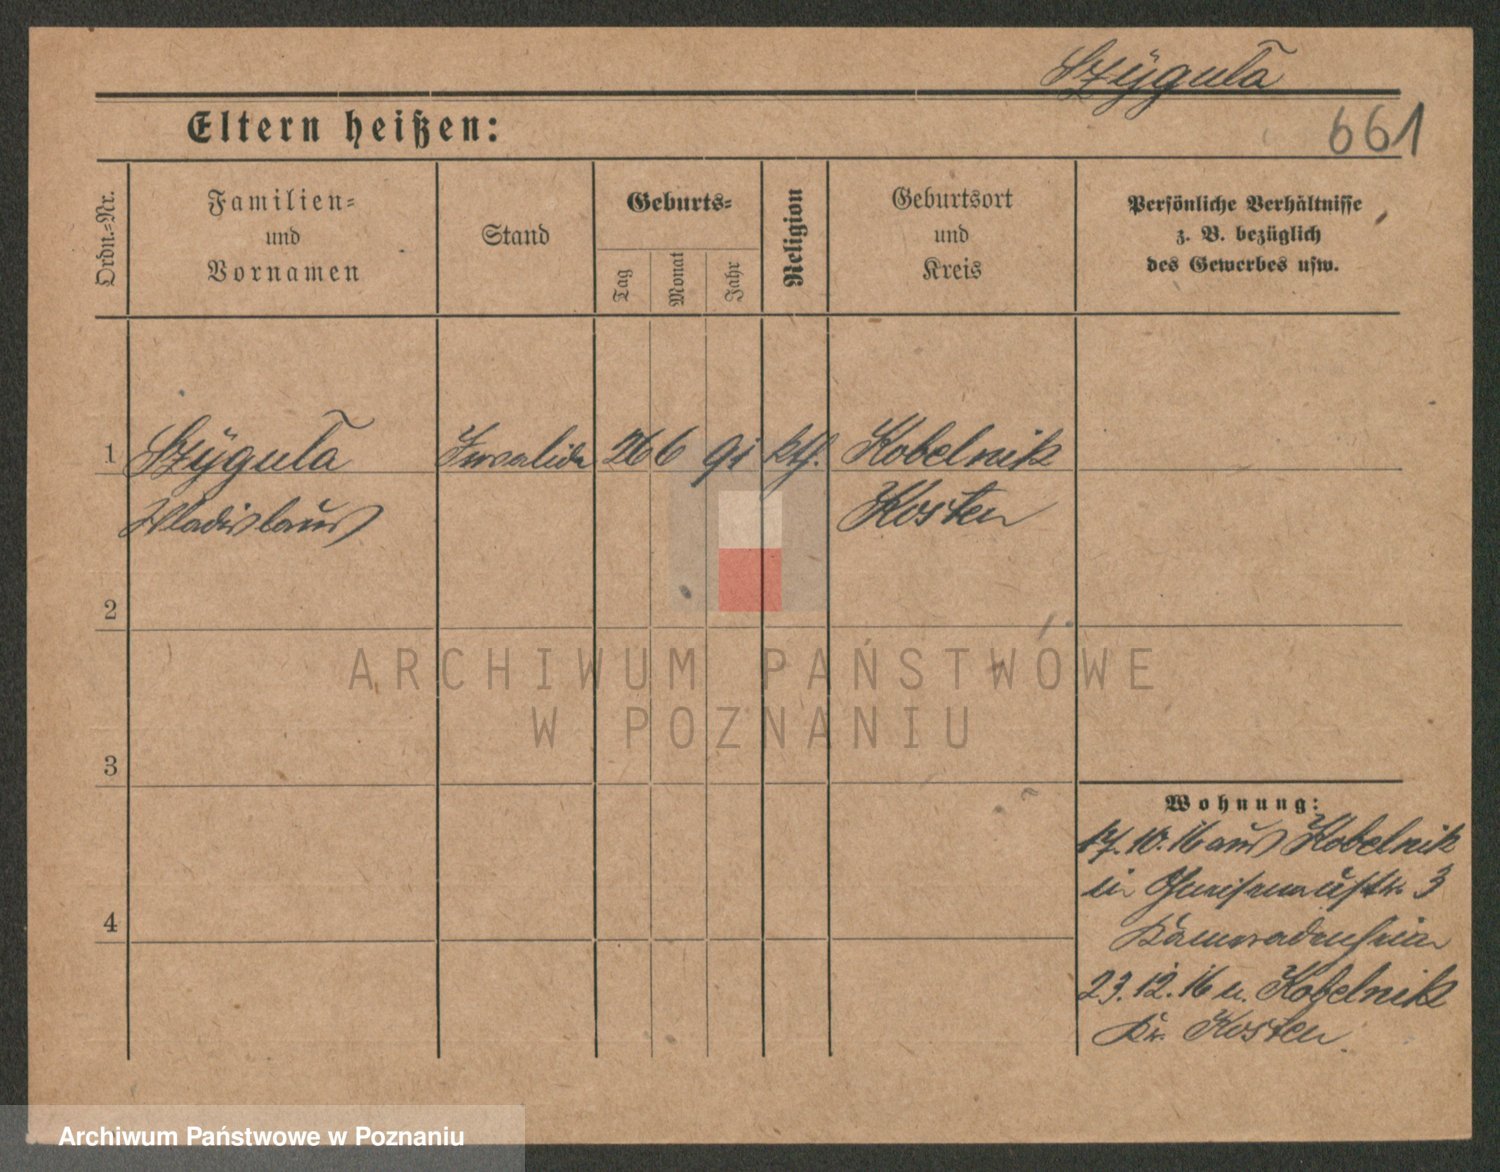 Szÿgula
661
Eltern heißen:
Ordn.-Nr.
Familien-
und
Vornamen
Stand
Geburts-
Tag
Monat
Jahr
Religion
Geburtsort
und
Kreis
Persönliche Verhältnisse
z. B. bezüglich
des Gewerbes usw.
1
Szÿgula
Invalide
26 6 91
kth.
Kobelnik
Wladislaus
Kosten
2
ARCHIWUM PAŃSTWOWE
W POZNANIU
3
Wohnung:
17.10.16 aus Kobelnik
in Gneisenaustr. 3
4
Kameradenheim
23.12.16 n. Kobelnik
Kr. Kosten.
Archiwum Państwowe w Poznaniu